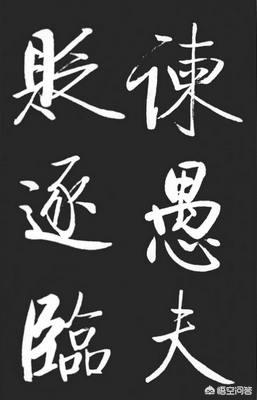 諫愚夫
貶逐臨
悟空问答